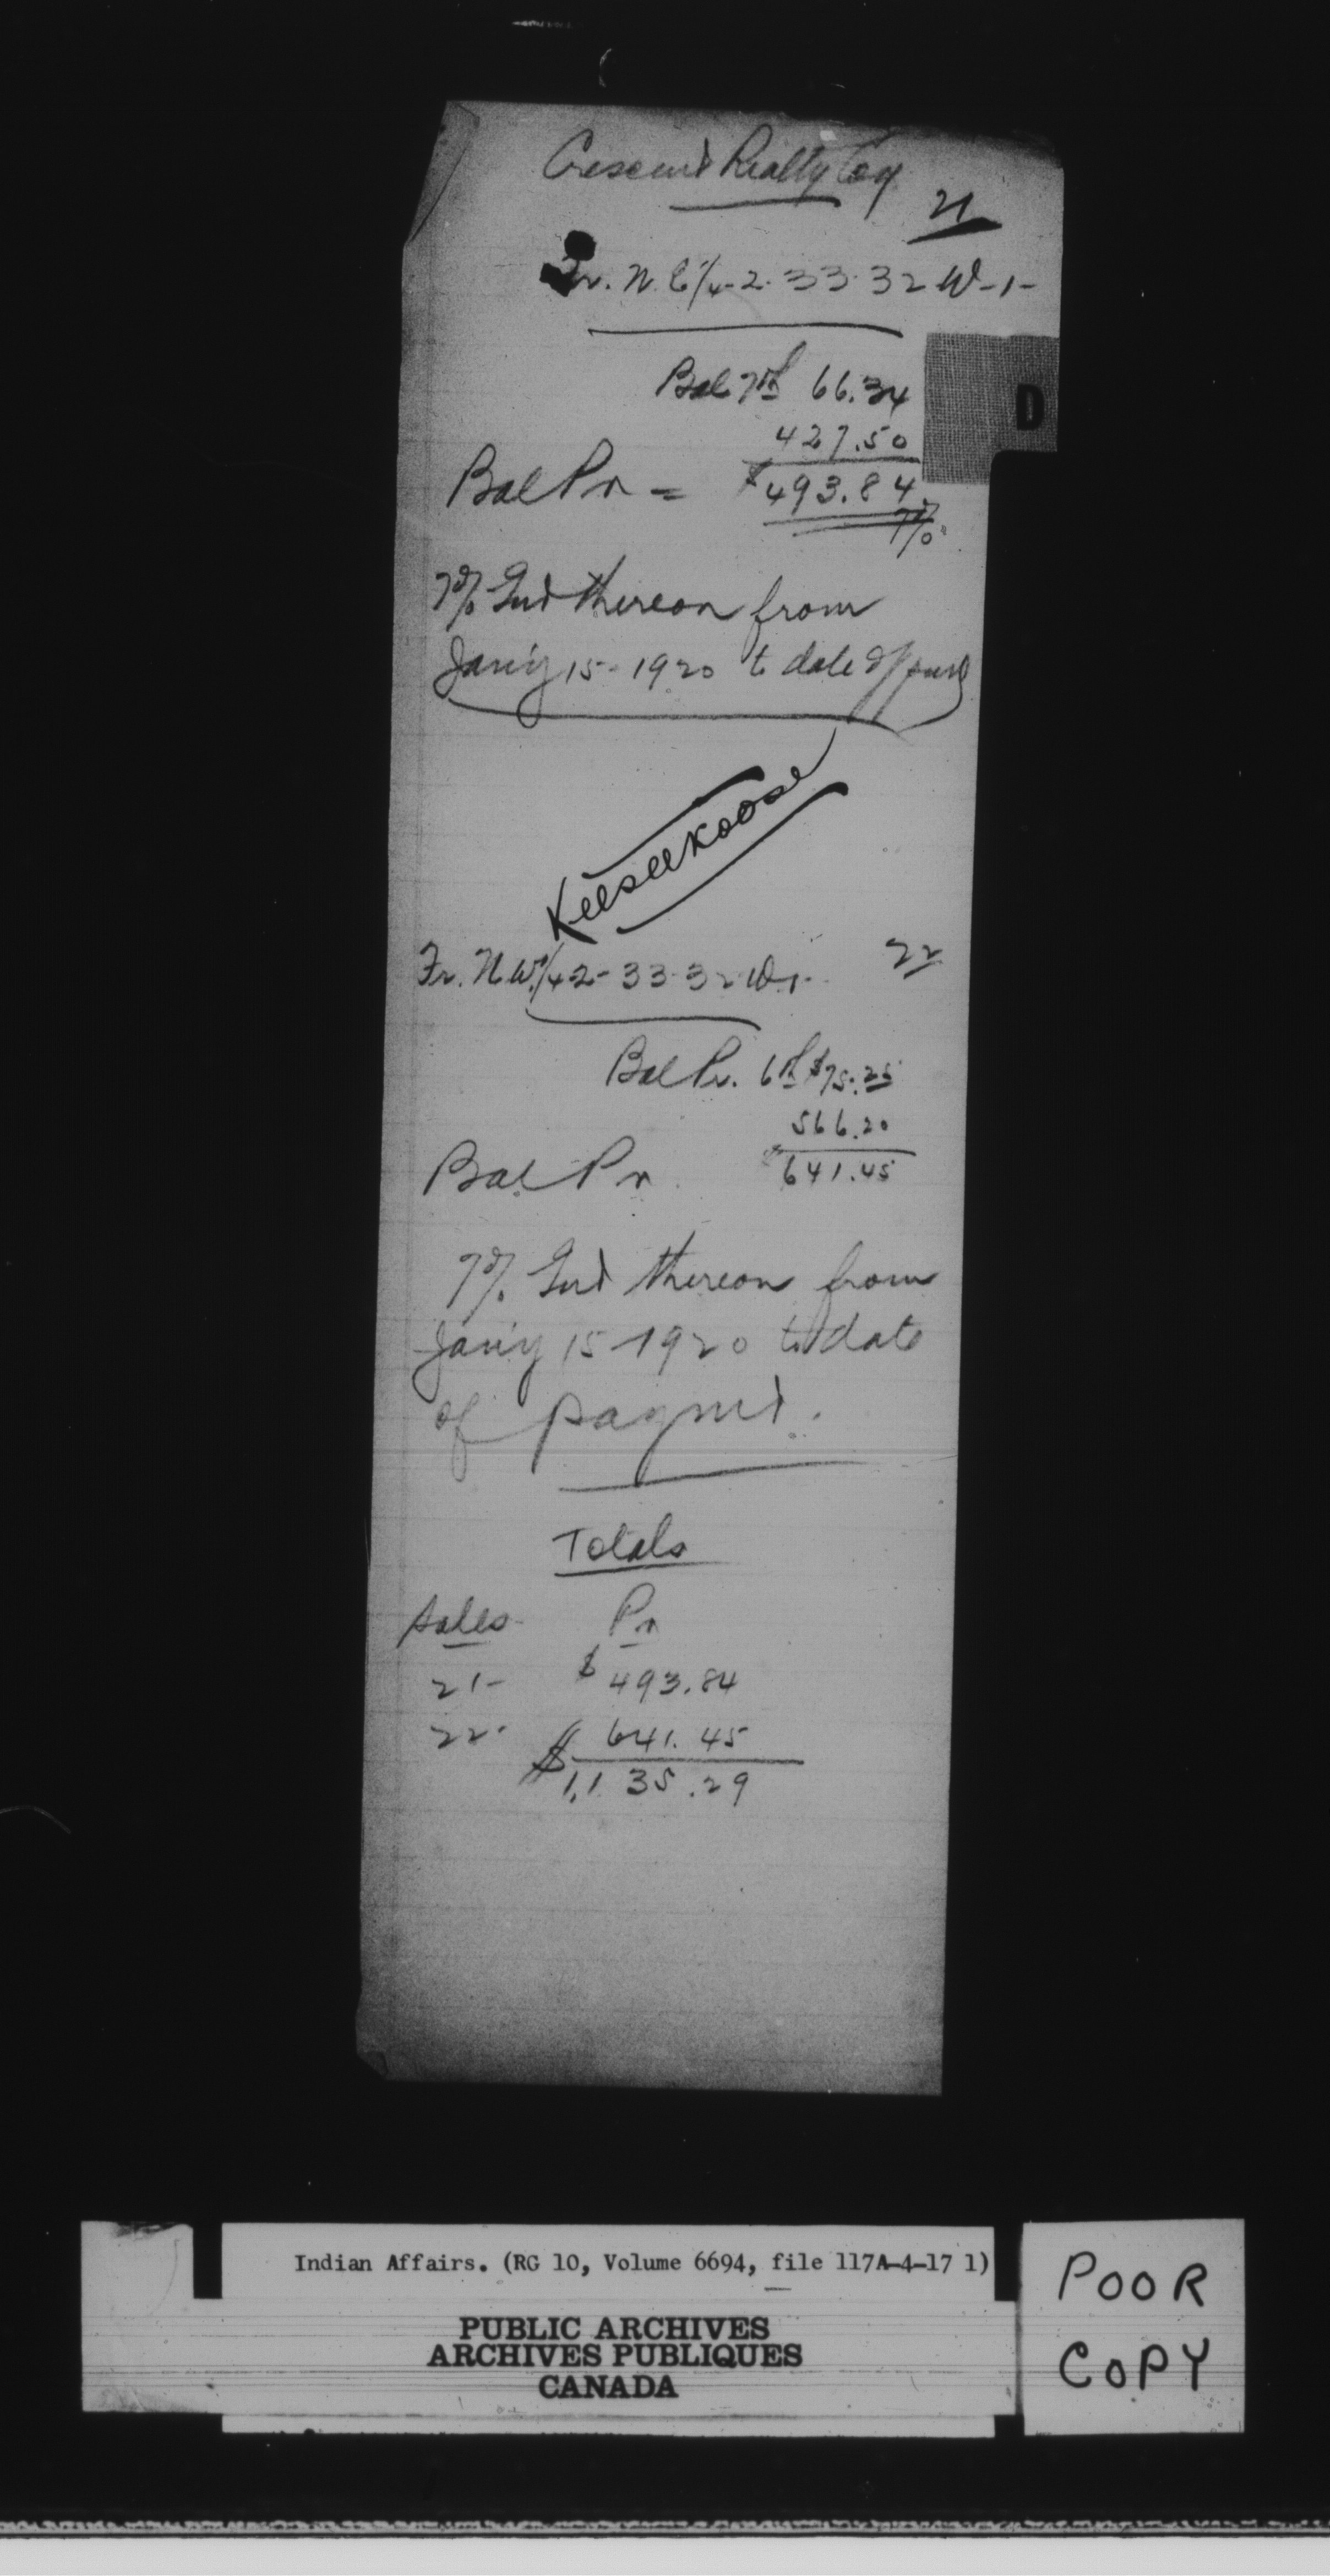 Crescent Realty Coy
21
Fr. N.E¼-2-33-32 W-1-
Bal 7th 66.34
427.50
Bal Pr = $493.84
7%
7% Int thereon from
Jan'y 15-1920 to date of
Keeseekoose
Fr. N.W.¼-2-33-32 W1-
22
Bal Pr. 6th $75.25
566.20
Bal Pr $641.45
7% Int thereon from
Jan'y 15-1920 to date
of paymt.
Totals
Sales- Pr
21- $493.84
22- 641.45
$1,135.29
D
Indian Affairs. (RG 10, Volume 6694, file 117A-4-17 1)
PUBLIC ARCHIVES
ARCHIVES PUBLIQUES
CANADA
POOR
COPY